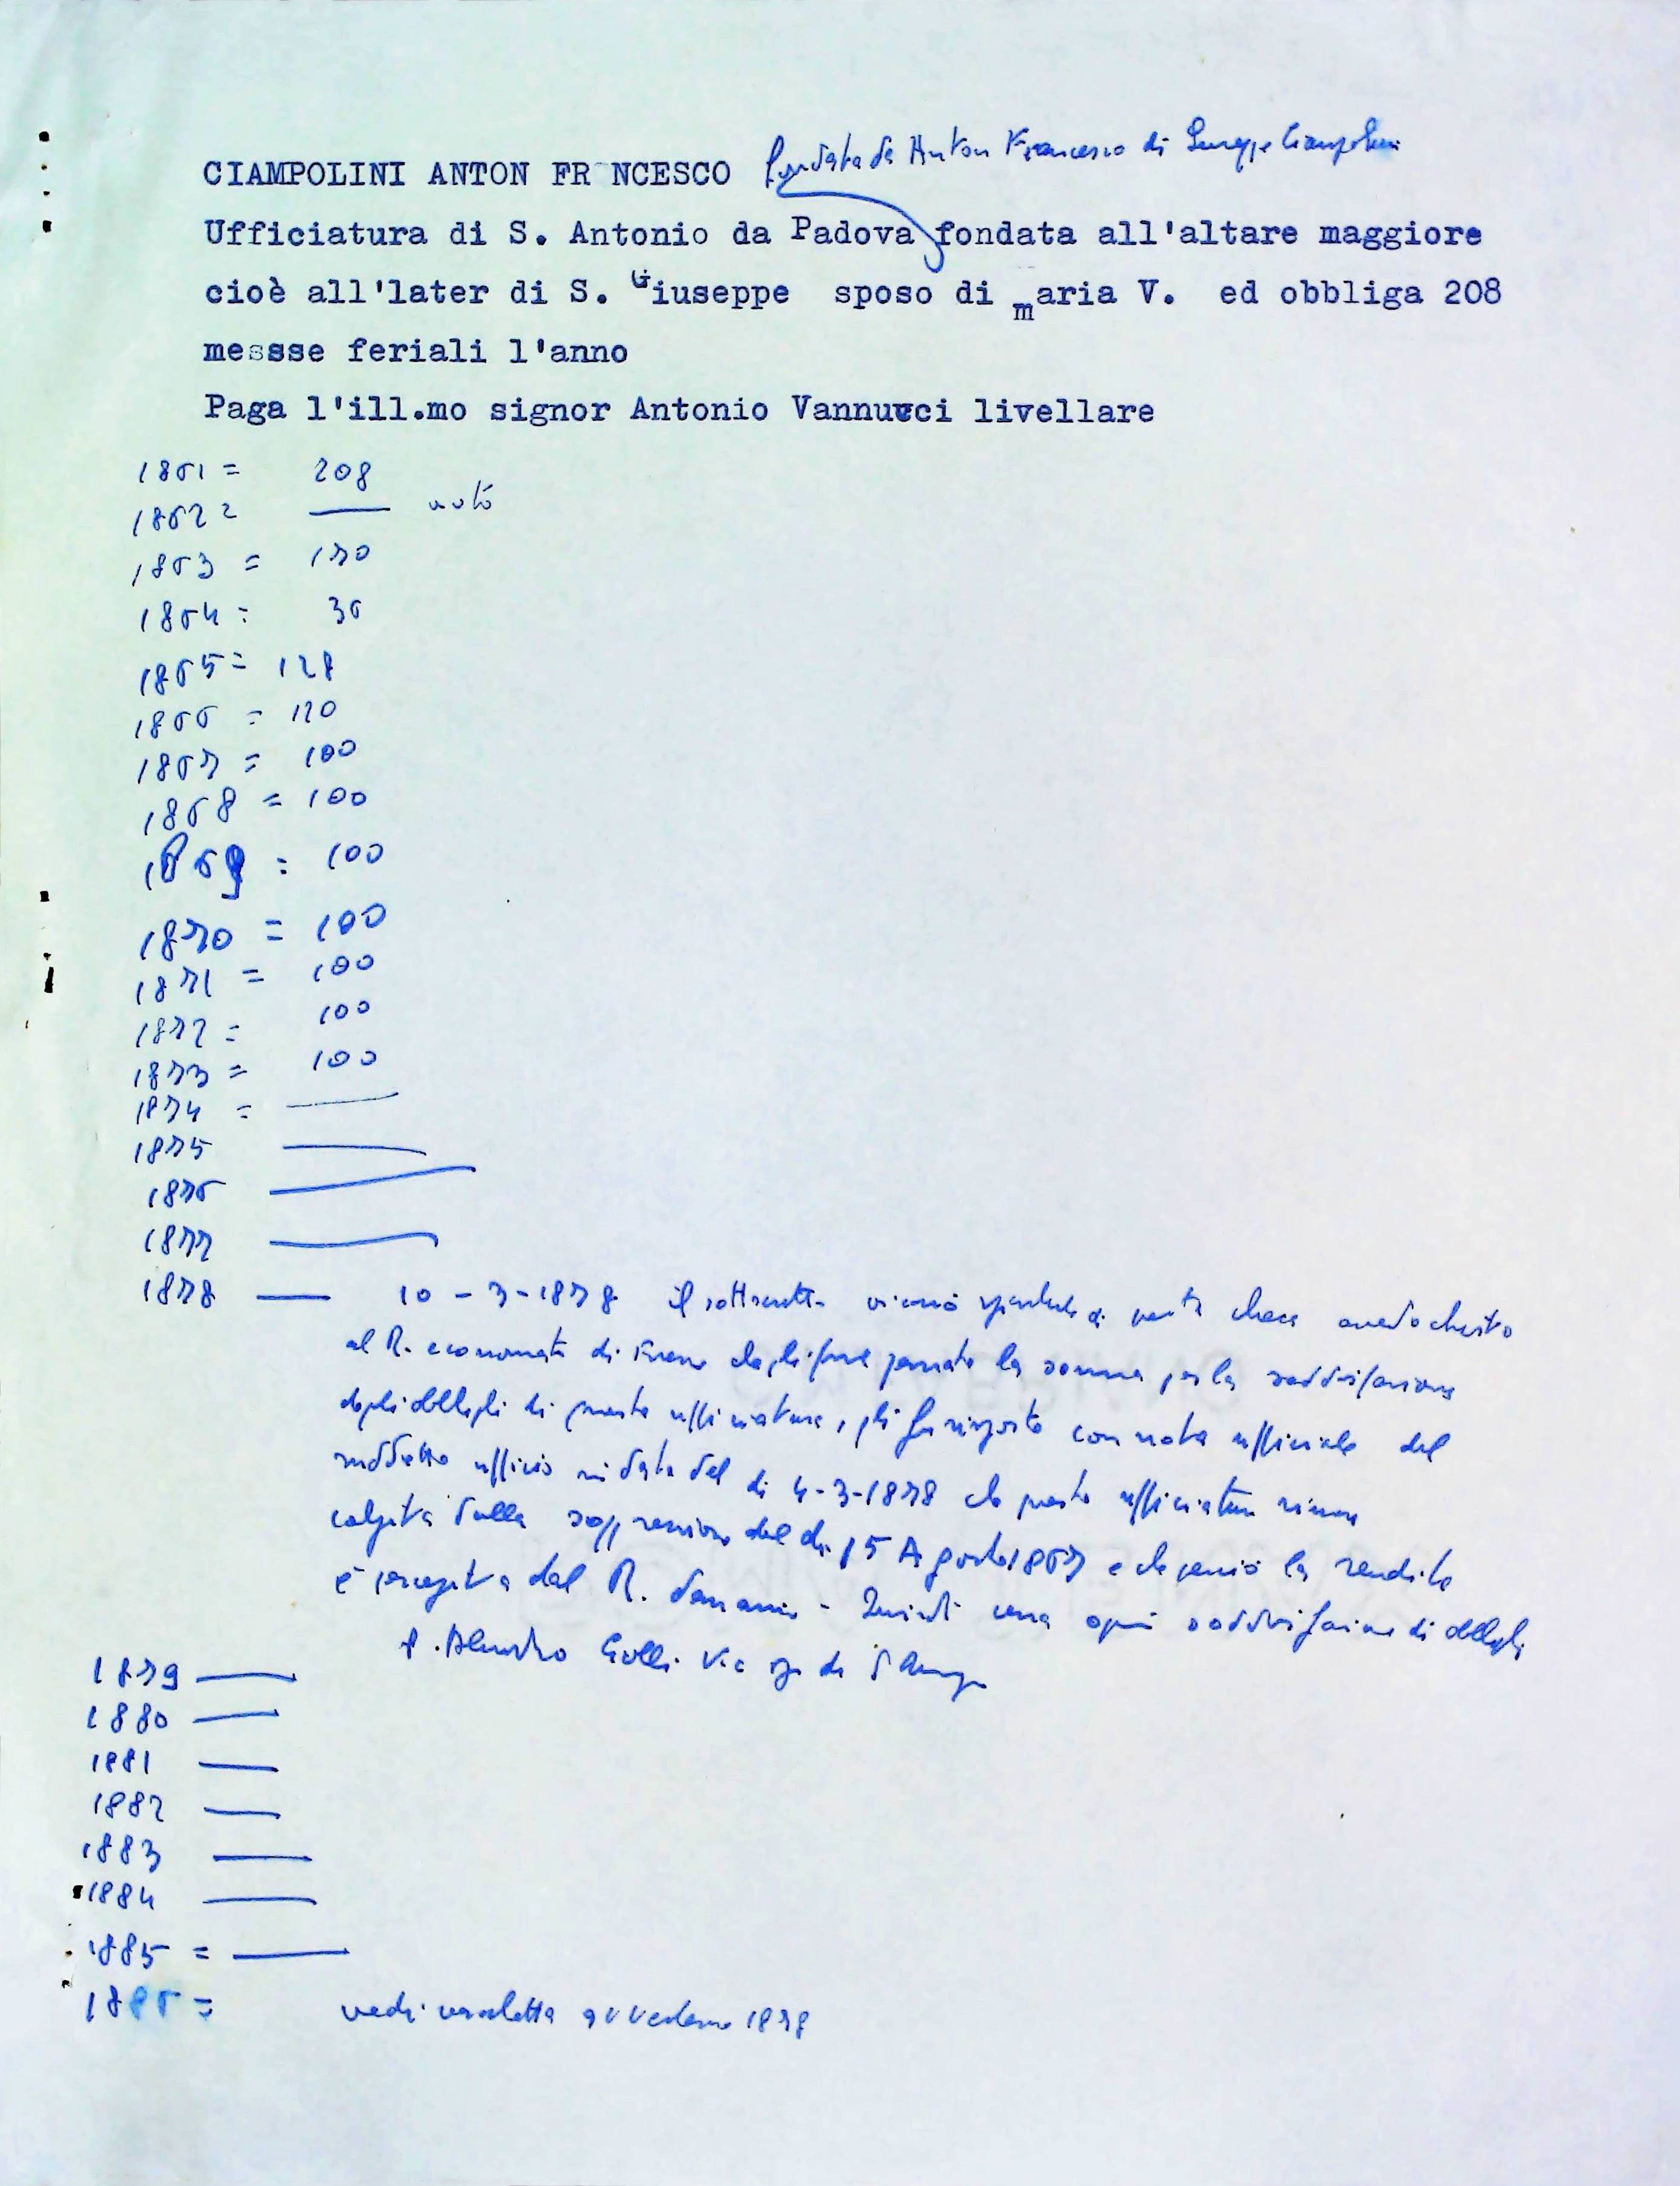 CIAMPOLINI ANTON FR NCESCO fondata da Anton Francesco di Giuseppe Ciampolini
Ufficiatura di S. Antonio da Padova fondata all'altare maggiore
cioè all'later di S. Giuseppe sposo di maria V. ed obbliga 208
messse feriali l'anno
Paga l'ill.mo signor Antonio Vannucci livellare
1861 = 208
1862 =
1863 = 170
1864 = 36
1865 = 128
1866 = 120
1867 = 100
1868 = 100
1869 = 100
1870 = 100
1871 = 100
1872 = 100
1873 = 100
1874 = —
1875 —
1876 —
1877 —
1878 — 10-3-1878 il sottoscritto di questa chiesa avendo chiesto
al R. economato di Firenze che gli fosse pagata la somma per la soddisfazione
degli obblighi di questa ufficiatura, gli fu risposto con nota ufficiale del
suddetto ufficio in data del di 4-3-1878 che questa ufficiatura rimase
colpita dalla soppressione del di 15 Agosto 1867 e che perciò la rendita
è percepita dal R. Demanio - Quindi cessa ogni soddisfazione di obblighi
1879 —
1880 —
1881 —
1882 —
1883 —
1884 —
1885 = —
1886 = vedi 1878